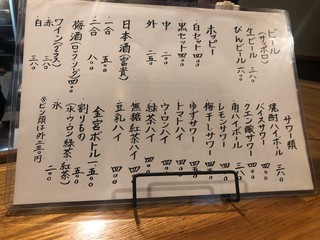 ビール
(サッポロ)
生ビール 三八〇
びんビール 六〇〇
ホッピー
白セット 四五〇
黒セット 四五〇
中 二〇〇
外 二五〇
日本酒(富貴)
一合 四五〇
二合 八〇〇
梅酒(ロック・ソーダ) 四〇〇
ワイン(グラス)
赤 三八〇
白 三八〇
サワー類
焼酎ハイボール 三八〇
バイスサワー 四〇〇
クエン酸サワー 四〇〇
角ハイボール 四五〇
レモンサワー 四〇〇
梅干しサワー 四〇〇
ゆずサワー 四〇〇
トマトハイ 四〇〇
ウーロンハイ 四〇〇
緑茶ハイ 四〇〇
無糖紅茶ハイ 四〇〇
豆乳ハイ 四〇〇
金宮ボトル 一五〇〇
割りもの 各二五〇
(水・ウーロン・緑茶・紅茶)
氷 二〇〇